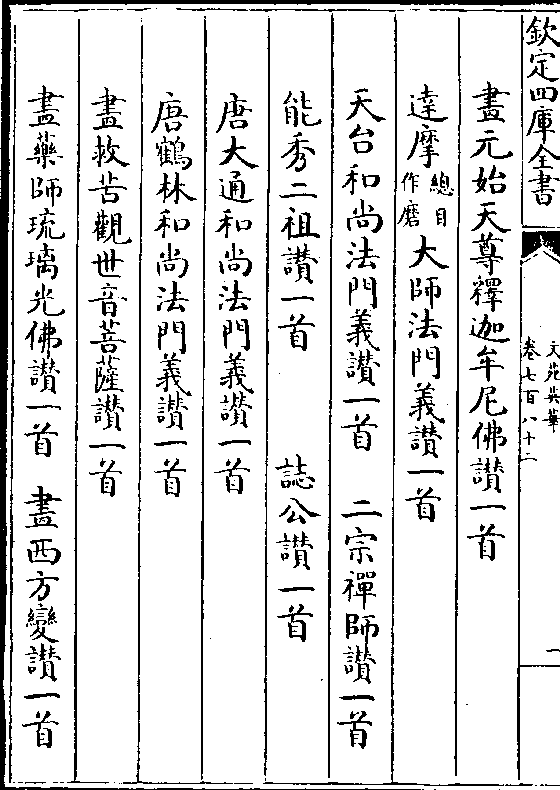 欽定四庫全書
文苑英華
卷七百八十二
一
畫元始天尊釋迦牟尼佛讃一首
達摩總目作磨大師法門義讃一首
天台和尚法門義讃一首　二宗禪師讃一首
能秀二祖讃一首　誌公讃一首
唐大通和尚法門義讃一首
唐鶴林和尚法門義讃一首
畫救苦觀世音菩薩讃一首
畫藥師琉璃光佛讃一首　畫西方變讃一首